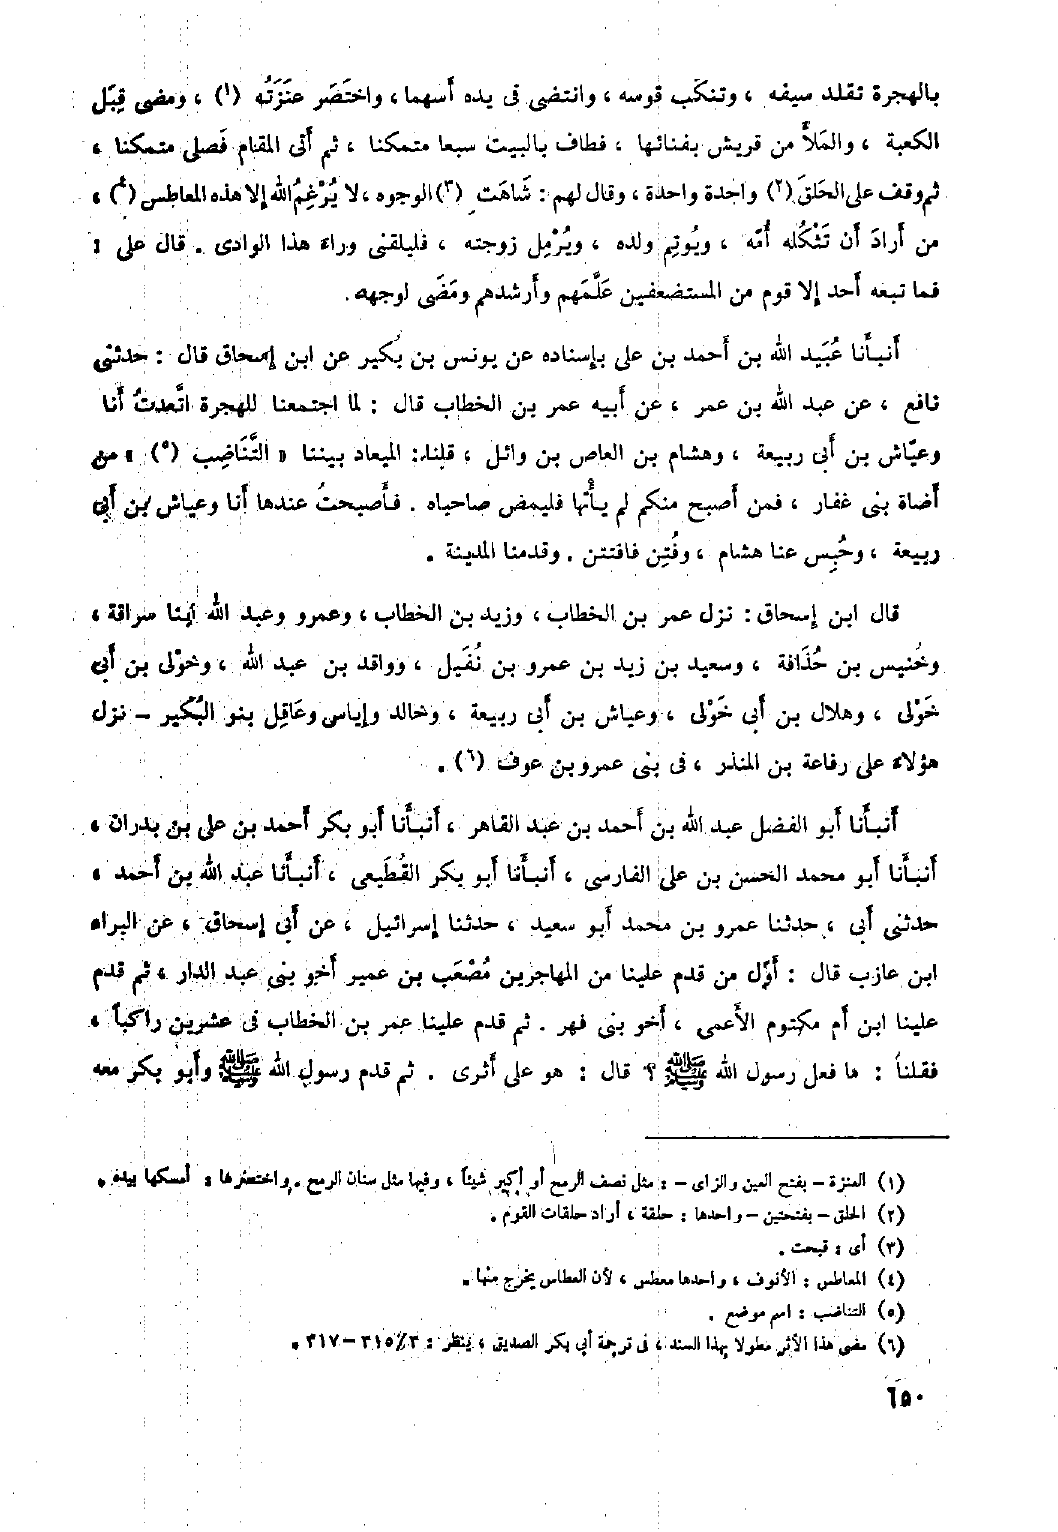 بالهجرة تقلد سيفه ، وتنكَّب قوسه ، وانتضى فى يده أسهما ، واختَصَر عنَزَتُه (١) ، ومضى قِبَل
الكعبة ، والمَلأُ من قريش بفنائها ، فطاف بالبيت سبعا متمكنا ، ثم أتى المقام فَصلى متمكنا ،
ثم وقف على الحَلَق (٢) واحدة واحدة ، وقال لهم : شَاهَت (٣) الوجوه ، لا يُرْغِمُ الله إلا هذه المعاطس (٤) ،
من أرادَ أن تَثْكُله أُمّه ، ويُوتِم ولده ، ويُرْمِل زوجته ، فليلقنى وراء هذا الوادى . قال على :
فما تبعه أحد إلا قوم من المستضعفين عَلَّمَهم وأرشدهم ومَضَى لوجهه .
أنبأنا عُبَيد الله بن أحمد بن على بإسناده عن يونس بن بُكير عن ابن إسحاق قال : حدثنى
نافع ، عن عبد الله بن عمر ، عن أبيه عمر بن الخطاب قال : لما اجتمعنا للهجرة اتَّعدتُ أنا
وعيّاش بن أبى ربيعة ، وهشام بن العاص بن وائل ، قلنا : الميعاد بيننا « التَّنَاضِب (٥) » من
أضاة بنى غفار ، فمن أصبح منكم لم يأتها فليمض صاحباه . فأصبحتُ عندها أنا وعياش بن أبى
ربيعة ، وحُبِس عنا هشام ، وفُتِن فافتتن . وقدمنا المدينة .
قال ابن إسحاق : نزل عمر بن الخطاب ، وزيد بن الخطاب ، وعمرو وعبد الله أبنا سراقة ،
وخُنيس بن حُذَافة ، وسعيد بن زيد بن عمرو بن نُفَيل ، وواقد بن عبد الله ، وخوْلى بن أبى
خَوْلى ، وهلال بن أبى خَوْلى ، وعياش بن أبى ربيعة ، وخالد وإياس وعَاقِل بنو البُكَير – نزل
هؤلاء على رفاعة بن المنذر ، فى بنى عمرو بن عوف (٦) .
أنبأنا أبو الفضل عبد الله بن أحمد بن عبد القاهر ، أنبأنا أبو بكر أحمد بن على بن بدران ،
أنبأنا أبو محمد الحسن بن على الفارسى ، أنبأنا أبو بكر القُطَيعى ، أنبأنا عبد الله بن أحمد ،
حدثنى أبى ، حدثنا عمرو بن محمد أبو سعيد ، حدثنا إسرائيل ، عن أبى إسحاق ، عن البراء
ابن عازب قال : أوّل من قدم علينا من المهاجرين مُصْعَب بن عمير أخو بنى عبد الدار ، ثم قدم
علينا ابن أم مكتوم الأعمى ، أخو بنى فهر . ثم قدم علينا عمر بن الخطاب فى عشرين راكباً ،
فقلنا : ما فعل رسول الله ﷺ ؟ قال : هو على أثرى . ثم قدم رسول الله ﷺ وأبو بكر معه
(١) العنزة – بفتح العين والزاى – : مثل نصف الرمح أو أكبر شيئاً ، وفيها مثل سنان الرمح . واختصرها : أمسكها بيده .
(٢) الحلق – بفتحتين – واحدها : حلقة ، أراد حلقات القوم .
(٣) أى : قبحت .
(٤) المعاطس : الأنوف ، واحدها معطس ، لأن العطاس يخرج منها .
(٥) التناضب : اسم موضع .
(٦) مضى هذا الأثر مطولا بهذا السند ، فى ترجمة أبى بكر الصديق ، ينظر : ٣/٣١٥ – ٣١٧ .
٦٥٠